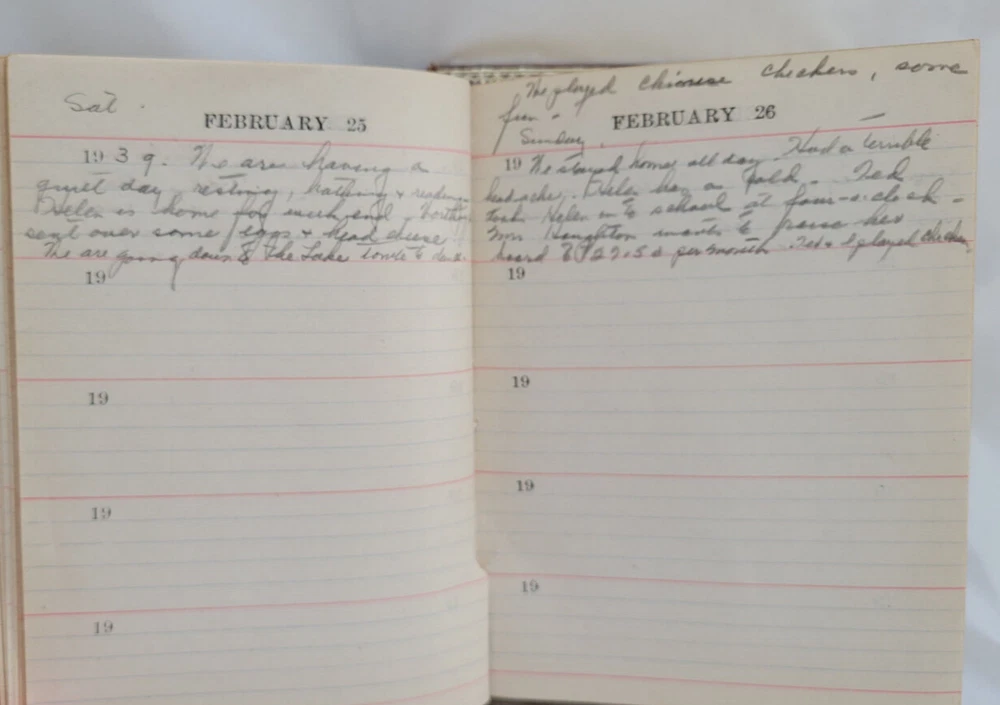 Sat.
FEBRUARY 25
1939. We are having a
quiet day, resting, bathing & reading
Helen is home for week end.
sent over some eggs & head cheese!!
We are going down to the Lake to
19
19
19
19
We played Chinese Checkers, some
fun -
FEBRUARY 26
Sunday,
19 We stayed home all day. Had a terrible
headache. Helen has a cold. Ted
took Helen in to school at four-o-clock -
Mrs Houghton wants to raise her
board to $27.50 per month. Ted & I played checkers
19
19
19
19